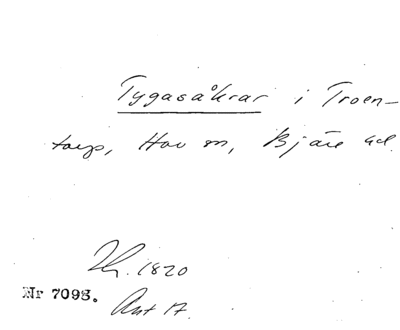 Tygasåkrar i Troen-
torp, Hov sn, Bjäre hd.
Th. 1820
Nr 7098.
Ant 17.